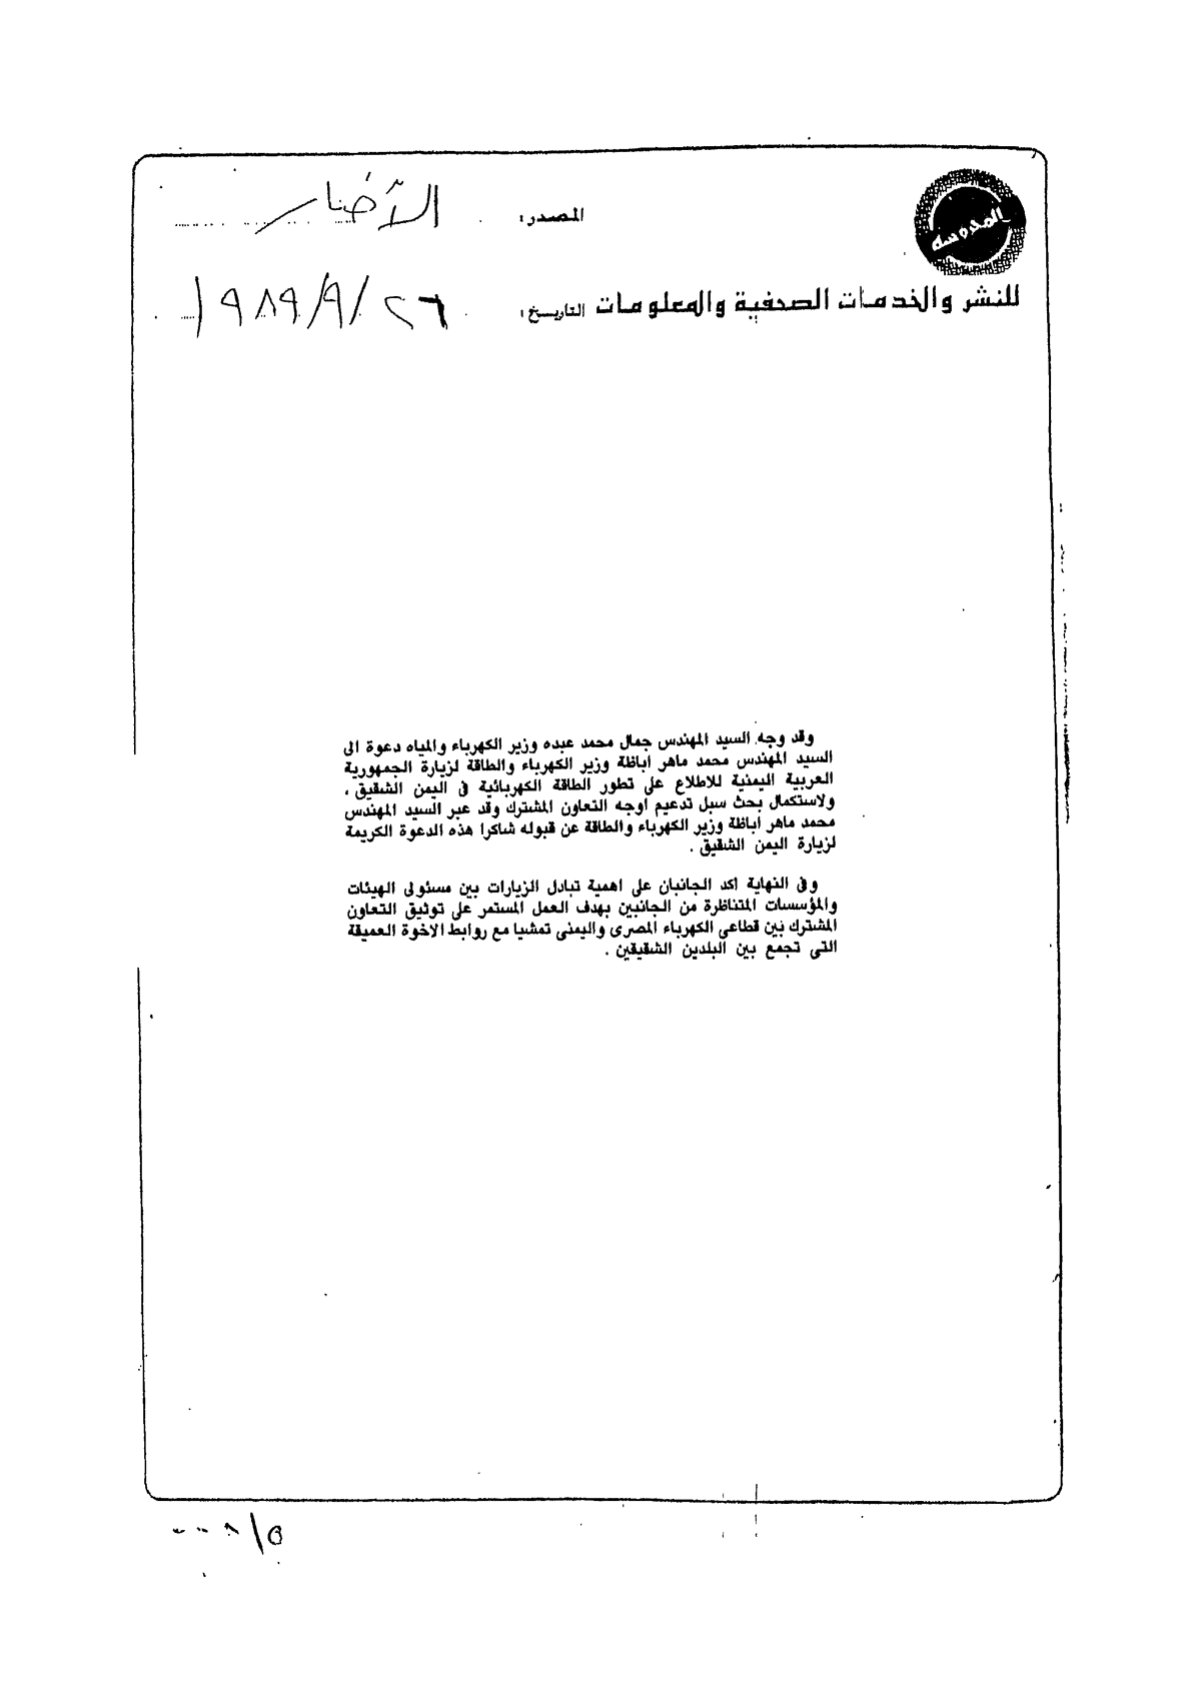 المدوسة
المصدر: الأخبار
للنشر والخدمات الصحفية والمعلومات
التاريخ: ٢٦/٩/١٩٨٩
وقد وجه السيد المهندس جمال محمد عبده وزير الكهرباء والمياه دعوة الى
السيد المهندس محمد ماهر اباظة وزير الكهرباء والطاقة لزيارة الجمهورية
العربية اليمنية للاطلاع على تطور الطاقة الكهربائية فى اليمن الشقيق ،
ولاستكمال بحث سبل تدعيم اوجه التعاون المشترك وقد عبر السيد المهندس
محمد ماهر اباظة وزير الكهرباء والطاقة عن قبوله شاكرا هذه الدعوة الكريمة
لزيارة اليمن الشقيق .
وفى النهاية اكد الجانبان على اهمية تبادل الزيارات بين مسئولى الهيئات
والمؤسسات المتناظرة من الجانبين بهدف العمل المستمر على توثيق التعاون
المشترك بين قطاعى الكهرباء المصرى واليمنى تمشيا مع روابط الاخوة العميقة
التى تجمع بين البلدين الشقيقين .